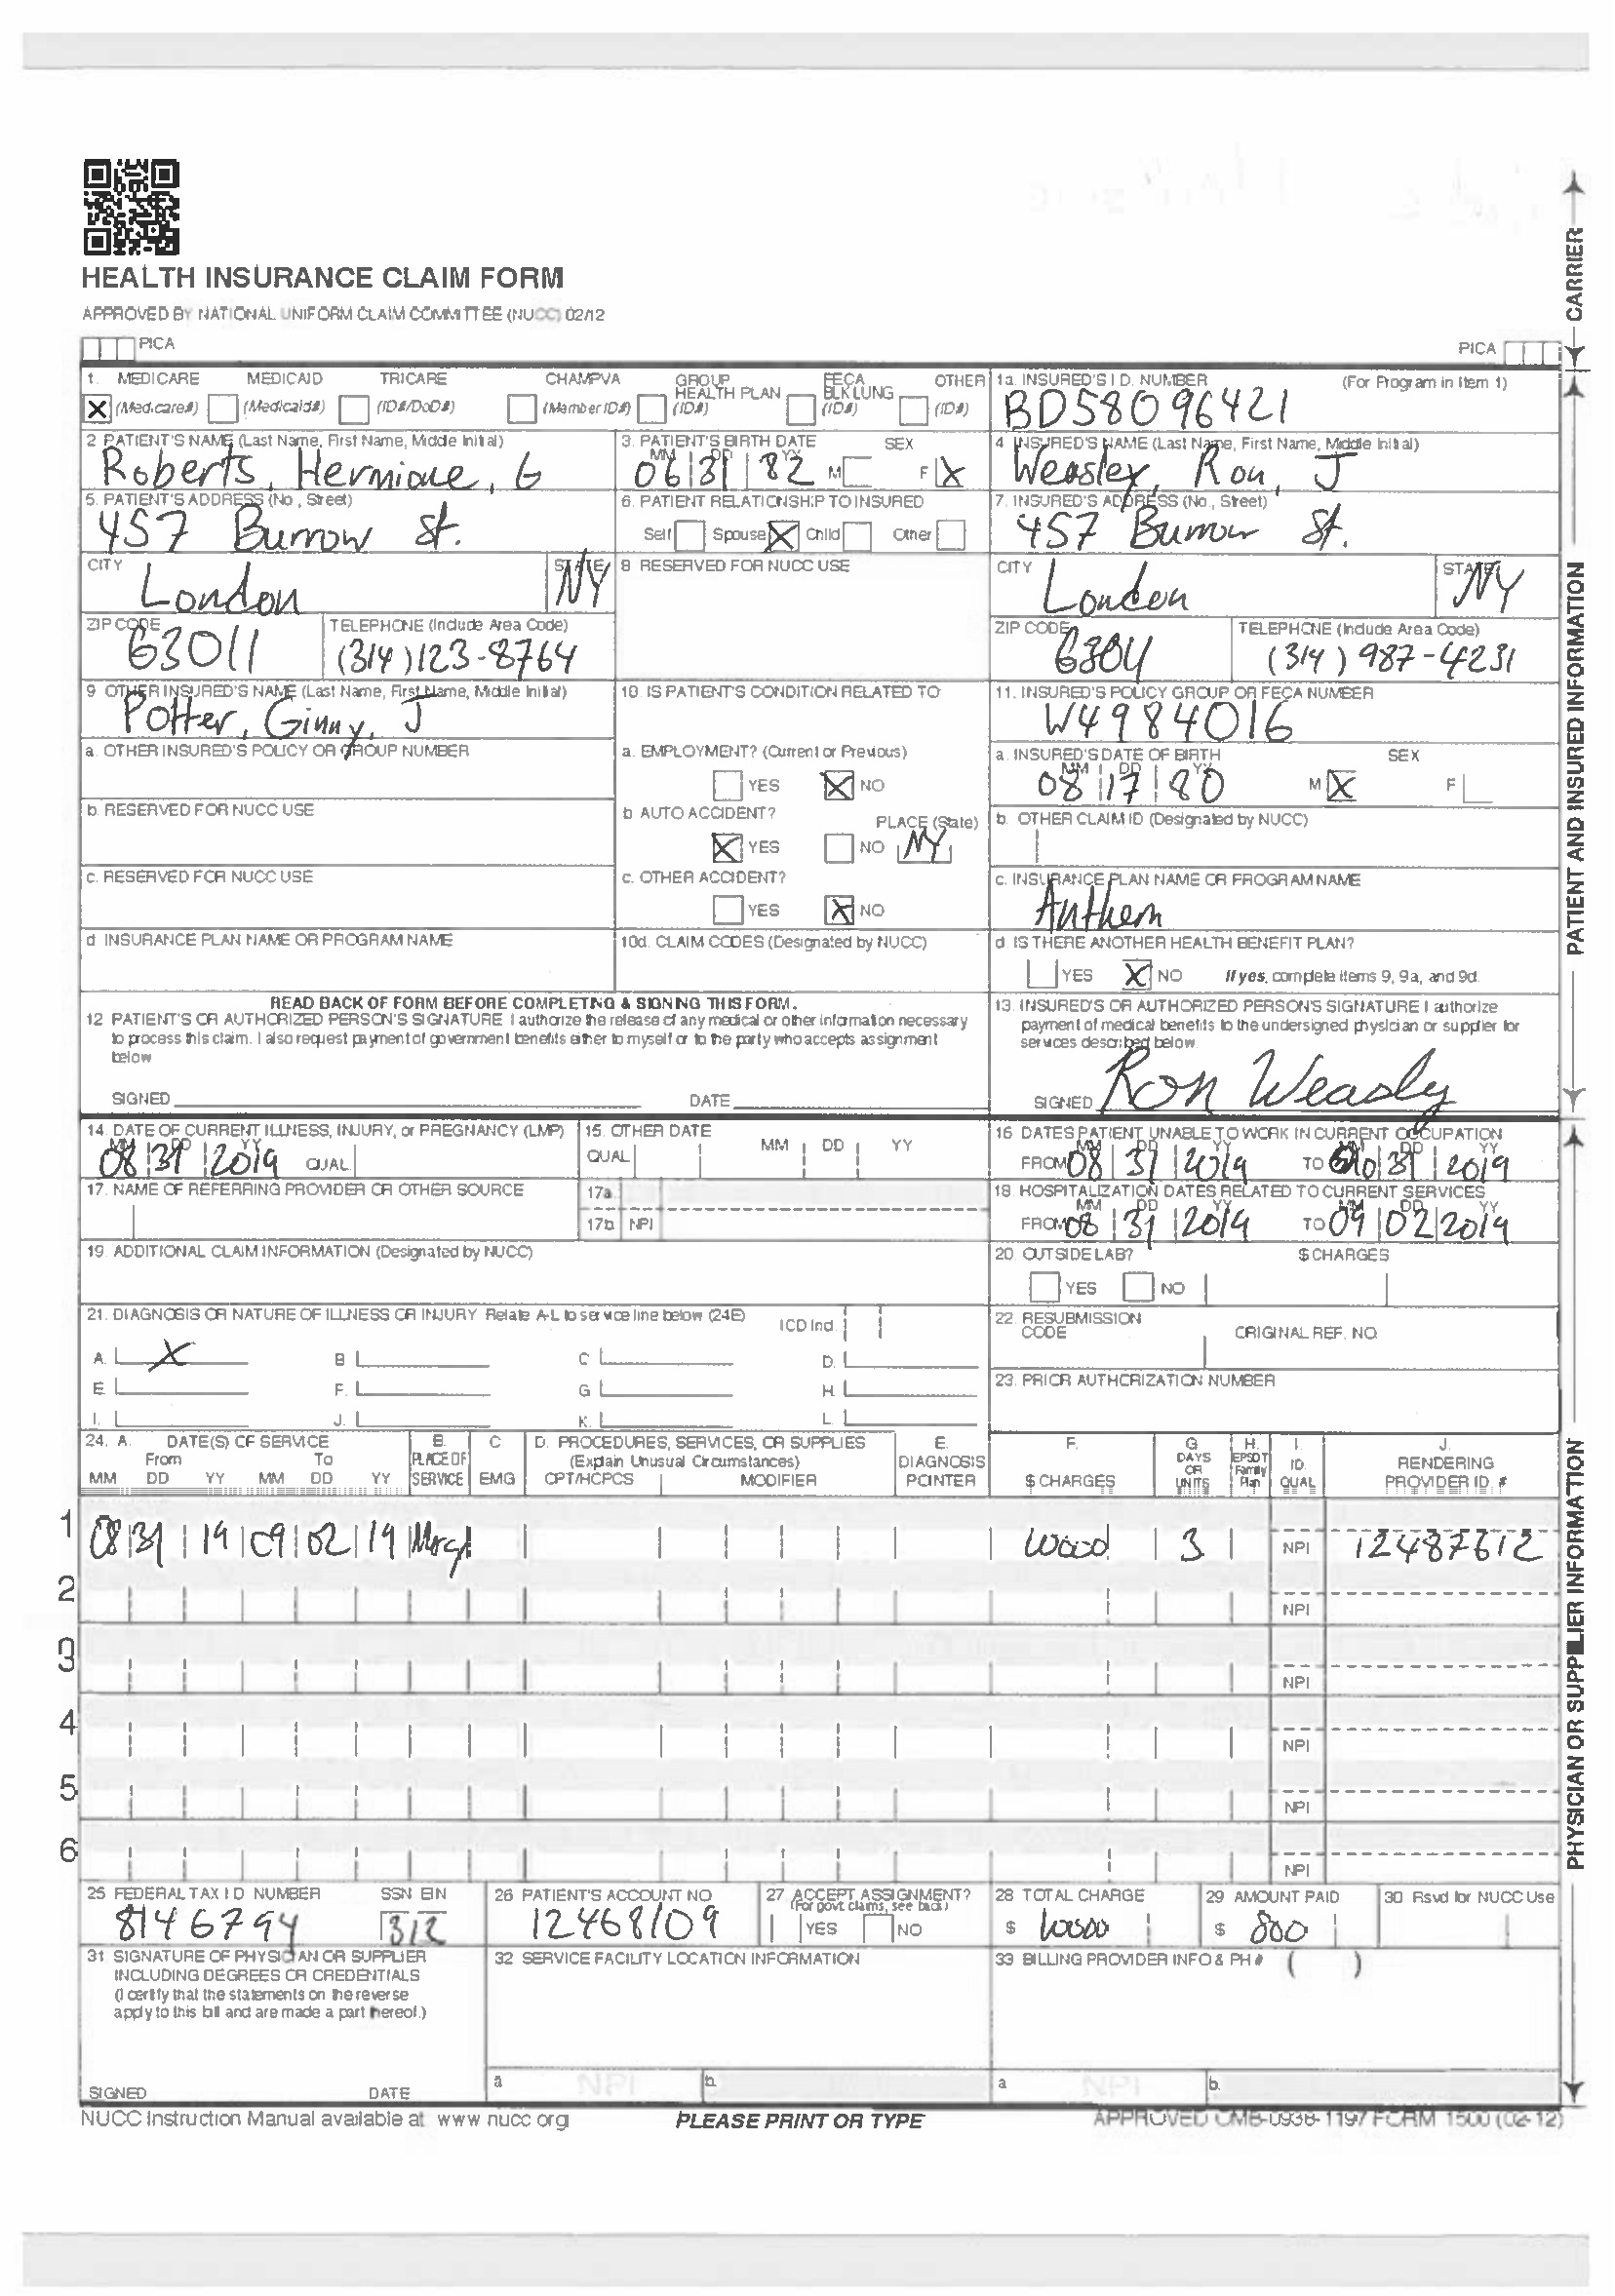 HEALTH INSURANCE CLAIM FORM
APPROVED BY NATIONAL UNIFORM CLAIM COMMITTEE (NUCC) 02/12
PICA
PICA
CARRIER
1. MEDICARE MEDICAID TRICARE CHAMPVA GROUP HEALTH PLAN FECA BLK LUNG OTHER
X (Medicare#) (Medicaid#) (ID#/DoD#) (Member ID#) (ID#) (ID#) (ID#)
1a. INSURED'S I.D. NUMBER (For Program in Item 1)
BD58096421
2. PATIENT'S NAME (Last Name, First Name, Middle Initial)
Roberts, Hermione, G
3. PATIENT'S BIRTH DATE SEX
MM DD YY
06 31 82 M F X
4. INSURED'S NAME (Last Name, First Name, Middle Initial)
Weasley, Ron, J
5. PATIENT'S ADDRESS (No., Street)
457 Burrow St.
6. PATIENT RELATIONSHIP TO INSURED
Self Spouse X Child Other
7. INSURED'S ADDRESS (No., Street)
457 Burrow St.
CITY STATE
London NY
8. RESERVED FOR NUCC USE
CITY STATE
London NY
ZIP CODE TELEPHONE (Include Area Code)
63011 (314) 123-8764
ZIP CODE TELEPHONE (Include Area Code)
(314) 987-4231
9. OTHER INSURED'S NAME (Last Name, First Name, Middle Initial)
Potter, Ginny, J
10. IS PATIENT'S CONDITION RELATED TO
11. INSURED'S POLICY GROUP OR FECA NUMBER
W4984016
a. OTHER INSURED'S POLICY OR GROUP NUMBER
a. EMPLOYMENT? (Current or Previous)
YES X NO
a. INSURED'S DATE OF BIRTH SEX
MM DD YY
08 17 80 M X F
b. RESERVED FOR NUCC USE
b. AUTO ACCIDENT? PLACE (State)
X YES NO NY
b. OTHER CLAIM ID (Designated by NUCC)
c. RESERVED FOR NUCC USE
c. OTHER ACCIDENT?
YES X NO
c. INSURANCE PLAN NAME OR PROGRAM NAME
Anthem
d. INSURANCE PLAN NAME OR PROGRAM NAME
10d. CLAIM CODES (Designated by NUCC)
d. IS THERE ANOTHER HEALTH BENEFIT PLAN?
YES X NO If yes, complete items 9, 9a, and 9d.
READ BACK OF FORM BEFORE COMPLETING & SIGNING THIS FORM.
12. PATIENT'S OR AUTHORIZED PERSON'S SIGNATURE I authorize the release of any medical or other information necessary
to process this claim. I also request payment of government benefits either to myself or to the party who accepts assignment
below
SIGNED DATE
13. INSURED'S OR AUTHORIZED PERSON'S SIGNATURE I authorize
payment of medical benefits to the undersigned physician or supplier for
services described below.
SIGNED Ron Weasly
PATIENT AND INSURED INFORMATION
14. DATE OF CURRENT ILLNESS, INJURY, or PREGNANCY (LMP)
MM DD YY
08 31 2019 QUAL.
15. OTHER DATE
QUAL. MM DD YY
16. DATES PATIENT UNABLE TO WORK IN CURRENT OCCUPATION
MM DD YY MM DD YY
FROM 08 31 2019 TO 31 2019
17. NAME OF REFERRING PROVIDER OR OTHER SOURCE
17a.
17b. NPI
18. HOSPITALIZATION DATES RELATED TO CURRENT SERVICES
MM DD YY MM DD YY
FROM 08 31 2019 TO 09 02 2019
19. ADDITIONAL CLAIM INFORMATION (Designated by NUCC)
20. OUTSIDE LAB? $ CHARGES
YES NO
21. DIAGNOSIS OR NATURE OF ILLNESS OR INJURY Relate A-L to service line below (24E) ICD Ind.
A. X B. C. D.
E. F. G. H.
I. J. K. L.
22. RESUBMISSION CODE ORIGINAL REF. NO.
23. PRIOR AUTHORIZATION NUMBER
24. A. DATE(S) OF SERVICE B. C. D. PROCEDURES, SERVICES, OR SUPPLIES E. F. G. H. I. J.
From To PLACE OF (Explain Unusual Circumstances) DIAGNOSIS DAYS OR EPSDT Family ID. RENDERING
MM DD YY MM DD YY SERVICE EMG CPT/HCPCS MODIFIER POINTER $ CHARGES UNITS Plan QUAL. PROVIDER ID. #
1 08 31 19 09 02 19 3 NPI 12487612
2 NPI
3 NPI
4 NPI
5 NPI
6 NPI
25. FEDERAL TAX I.D. NUMBER SSN EIN
8146794 312
26. PATIENT'S ACCOUNT NO.
12468109
27. ACCEPT ASSIGNMENT?
(For govt. claims, see back)
YES NO
28. TOTAL CHARGE
$
29. AMOUNT PAID
$ 800
30. Rsvd for NUCC Use
31. SIGNATURE OF PHYSICIAN OR SUPPLIER
INCLUDING DEGREES OR CREDENTIALS
(I certify that the statements on the reverse
apply to this bill and are made a part thereof.)
SIGNED DATE
32. SERVICE FACILITY LOCATION INFORMATION
a. NPI b.
33. BILLING PROVIDER INFO & PH # ( )
a. NPI b.
PHYSICIAN OR SUPPLIER INFORMATION
NUCC Instruction Manual available at: www.nucc.org
PLEASE PRINT OR TYPE
APPROVED OMB-0938-1197 FORM 1500 (02-12)